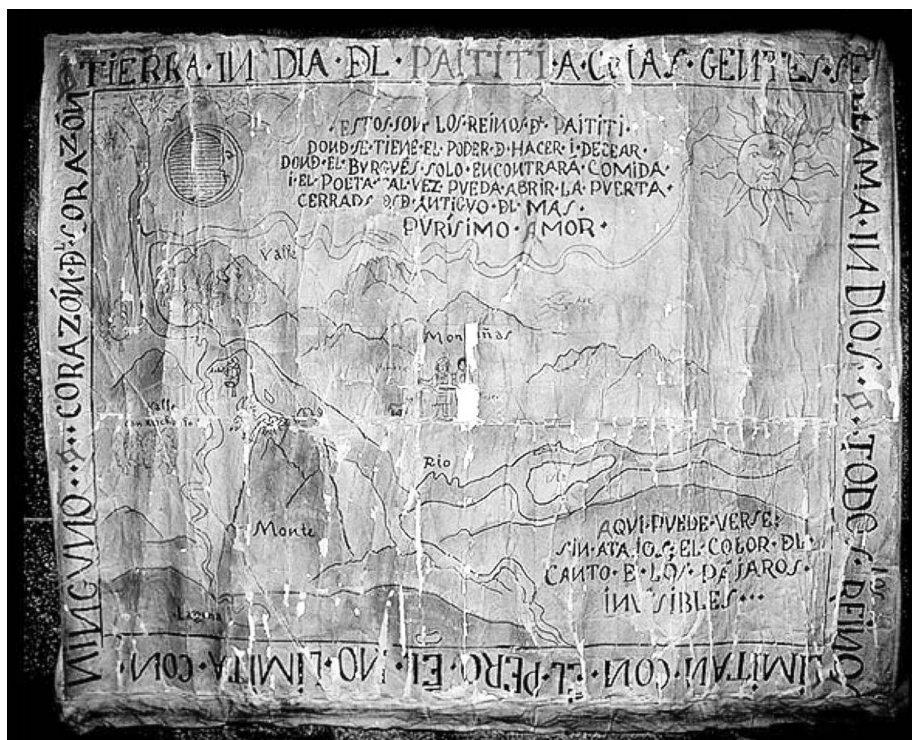 TIERRA·IN DIA·ĐL·PAITITI·A·CUIAS·GENTES·SE
LLAMA·IN DIOS· TODOS·LOS REINOS
LIMITAN·CON·ÉL·PERO·ÉL·NO·LIMITA·CON·
NINGUNO···CORAZÓN·ĐL·CORAZÓN
·ESTOS·SON·LOS·REINOS·ĐL·PAITITI·
DOND·SE·TIENE·EL·PODER·D·HACER·I·DECEAR·
DOND·EL·BVRGVÉS·SOLO·ENCONTRARÁ·COMIDA·
I·EL·POETA·TAL·VEZ·PVEDA·ABRIR·LA·PVERTA·
CERRADA·DSD·ANTIGVO·ĐL·MAS·
PVRÍSIMO·AMOR·
Valle
Montañas
Valle
Rio
Monte
Laguna
AQVI·PVEDE·VERSE·
SIN·ATAJOS·EL·COLOR·ĐL
CANTO·D·LOS·PÁJAROS·
INVISIBLES···